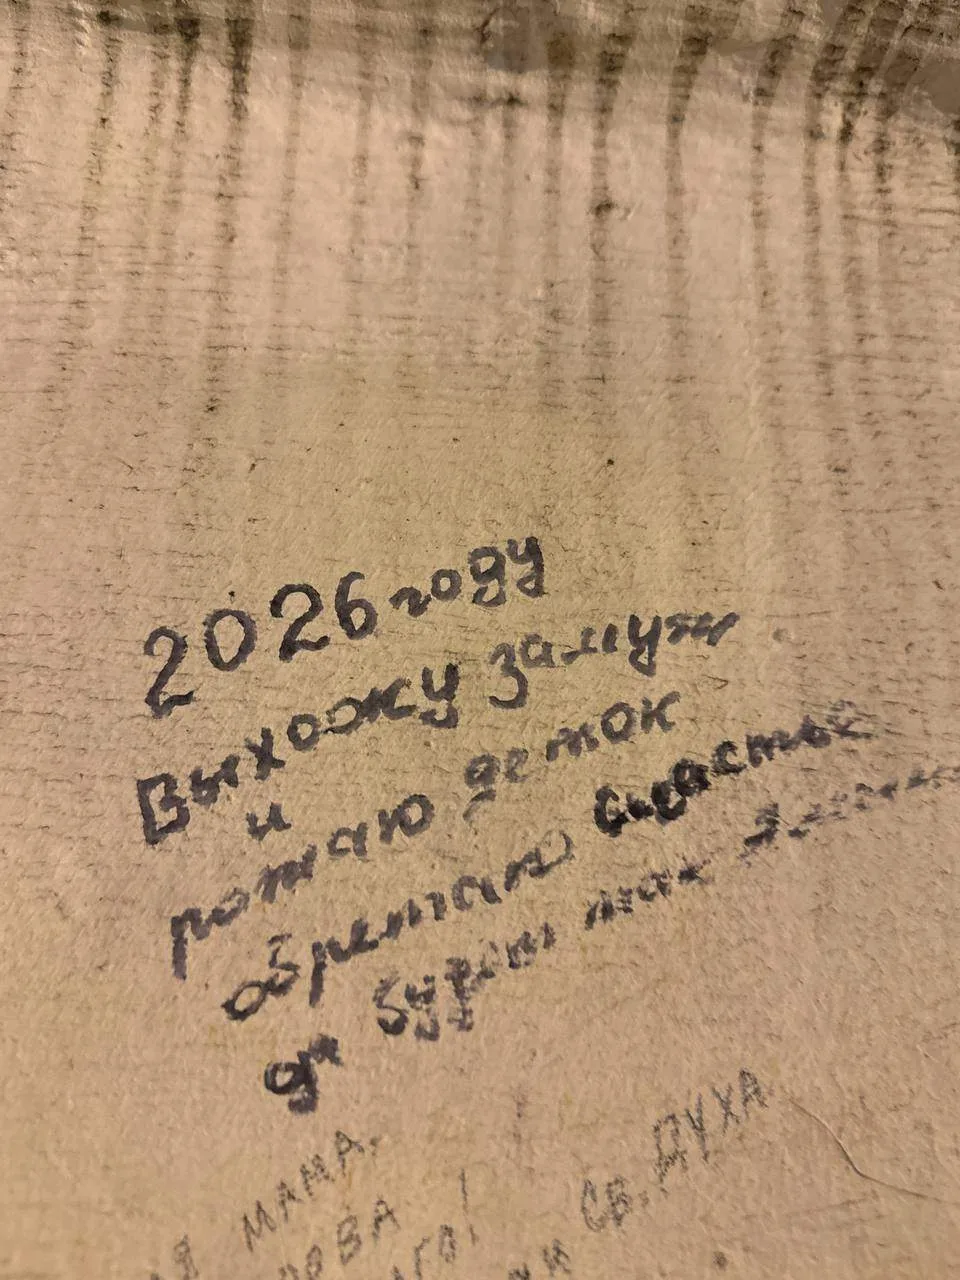 2026 году
Выхожу замуж
и
рожаю деток
обретаю счастье
да будет так
МАМА.
СВ. ДУХА